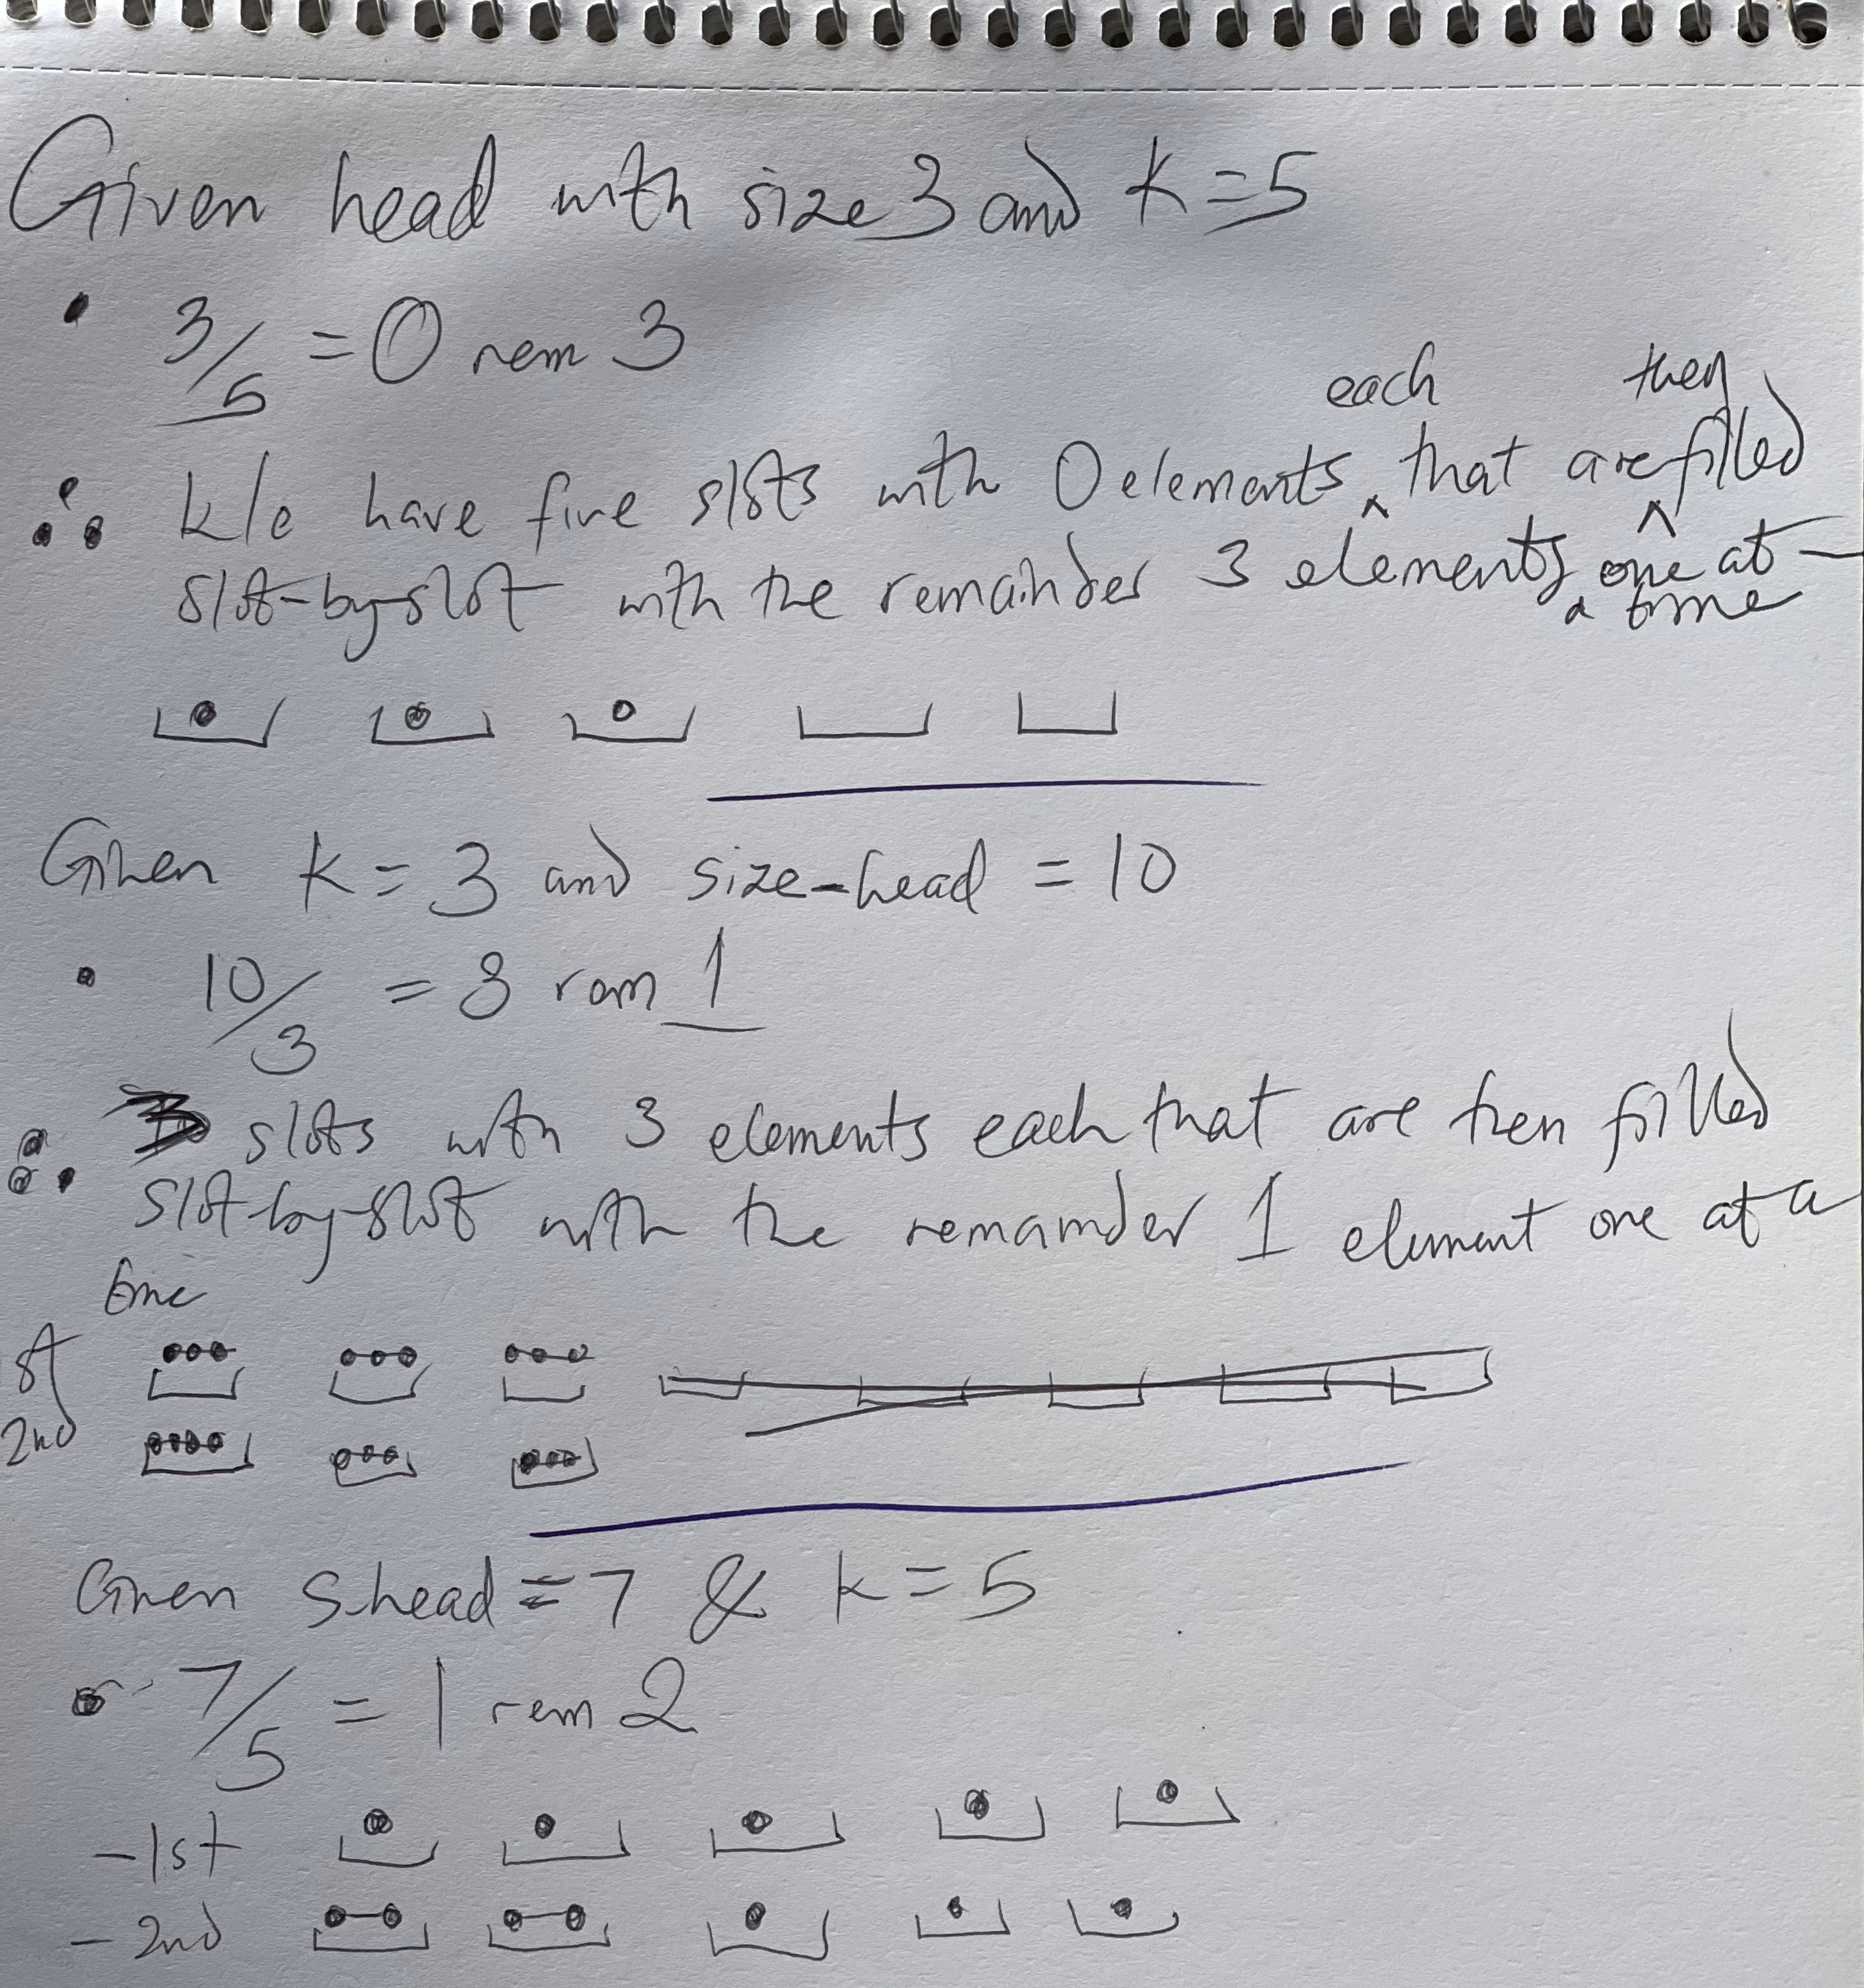 Given head with size 3 and k=5
• 3/5 = 0 rem 3
each then
∴ We have five slots with 0 elements ^ that are ^ filled
slot-by-slot with the remainder 3 elements, one at-
a time
Given k = 3 and size-head = 10
• 10/3 = 3 rem 1
∴ slots with 3 elements each that are then filled
slot-by-slot with the remainder 1 element one at a
time
1st
2nd
Given s.head = 7 & k = 5
• 7/5 = 1 rem 2
- 1st
- 2nd